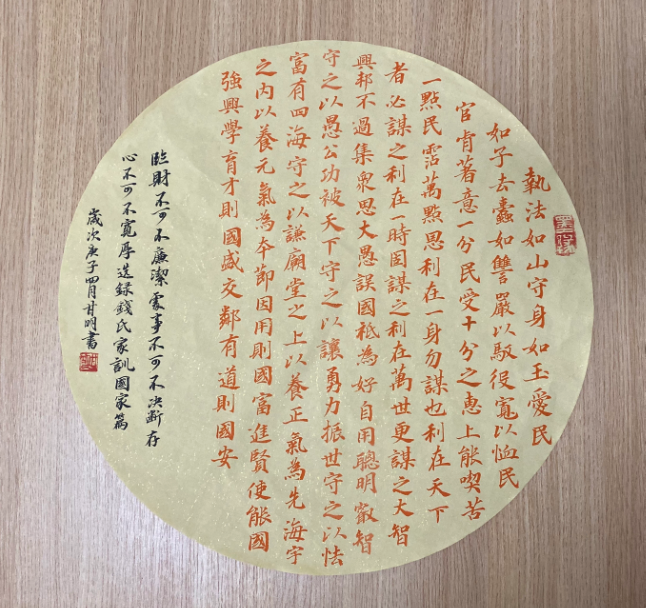 執法如山守身如玉愛民
如子去蠹如讐嚴以馭役寬以恤民
官肯著意一分民受十分之惠上能喫苦
一點民霑萬點恩利在一身勿謀也利在天下
者必謀之利在一時固謀之利在萬世更謀之大智
興邦不過集衆思大愚誤國祗為好自用聰明叡智
守之以愚公功被天下守之以讓勇力振世守之以怯
富有四海守之以謙廟堂之上以養正氣為先海宇
之内以養元氣為本節因用則國富進賢使能國
強興學育才則國盛交鄰有道則國安
臨財不可不廉潔處事不可不决斷存
心不可不寬厚選録錢氏家訓國家篇
歲次庚子四月甘明書